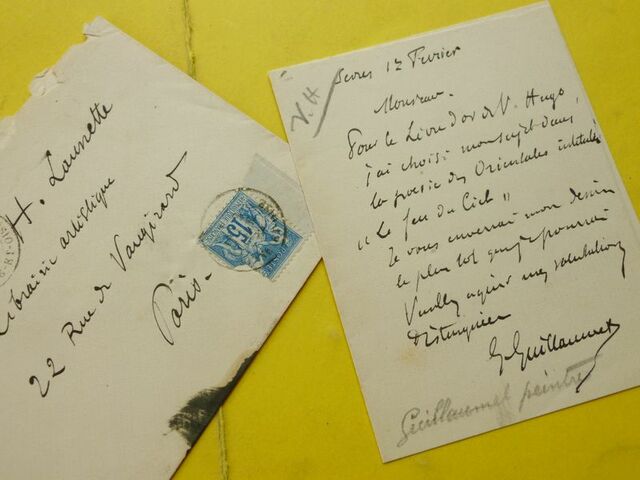 H. Launette
Librairie artistique
22 Rue de Vaugirard
Paris.
15
V. H
Sevres 12 Fevrier
Monsieur.
Pour le Livre d'or de V. Hugo
j'ai choisi mon sujet dans,
la poésie des Orientales intitulée
"Le feu du Ciel"
Je vous enverrai mon dessin
le plus tôt que je pourrai
Veuillez agréer mes salutations
distinguées
G Guillaumet
Guillaumet peintre